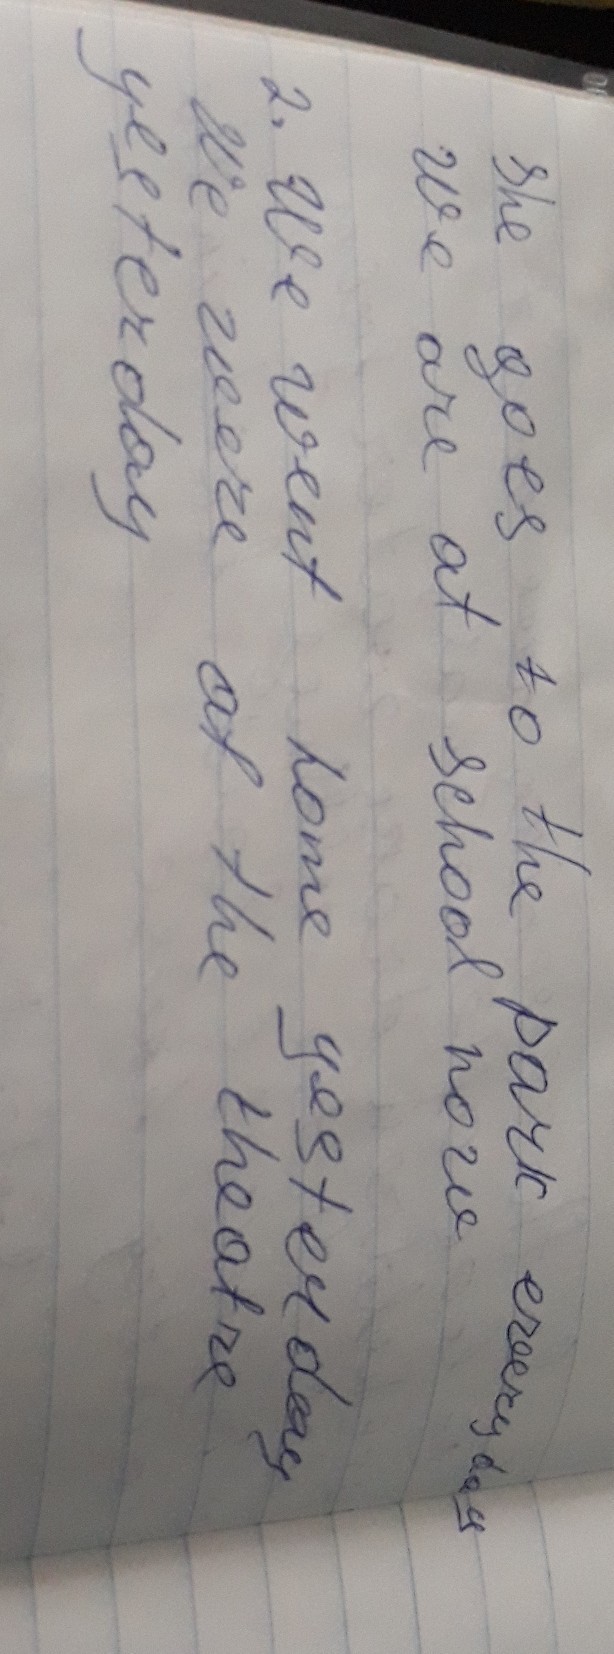 She goes to the park every day
We are at school now
2. We went home yesterday
We were at the theatre
yesterday